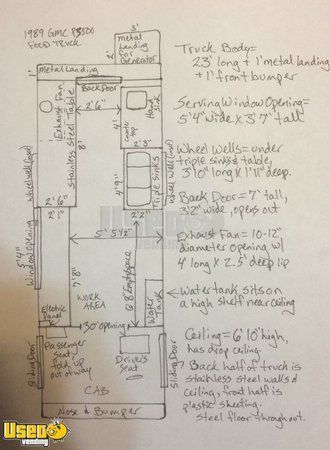 1989 GMC P3500
FOOD TRUCK
3'
2'
Metal
landing
for
Generator
Metal Landing
1'
Back Door
Exhaust Fan
Stainless Steel Table
8'
2'6"
Hand
sink
counter top
4'
2'3"
Triple Sinks
4'9"
Wheel well (under)
Wheel well (under)
2'6"
2'1"
2'2"
5' 5 1/2"
5'4"
Window Opening
7'8"
WORK
AREA
6'8" Empty space
Water
Tank
Electric
Panel
30" opening
Passenger
Seat,
fold up
out of way
Driver's
Seat
Sliding Door
Sliding Door
CAB
Nose & Bumper
Truck Body =
23' long + 1' metal landing
+ 1' front bumper
Serving Window Opening =
5'4" wide x 3'7" tall
Wheel Wells = under
triple sinks & table,
3'10" long x 1'11" deep.
Back Door = 7' tall,
3'2" wide, opens out
Exhaust Fan = 10-12"
diameter opening w/
4' long x 2.5' deep lip
Water tank sits on
a high shelf near ceiling
Ceiling = 6'10" high,
has drop ceiling.
Back half of truck is
stainless steel walls &
ceiling, front half is
plastic sheeting.
Steel floor throughout.
Used
vending
Used
vending